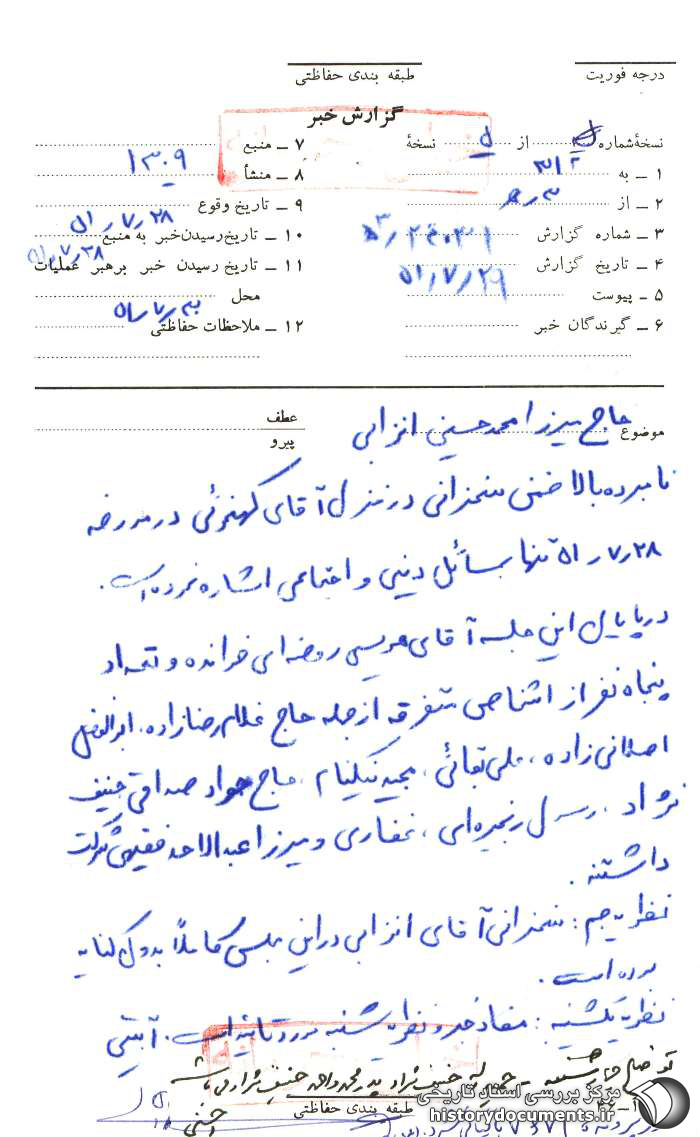 درجه فوریت
طبقه بندی حفاظتی
گزارش خبر
نسخهٔ شماره از نسخهٔ
۱ ـ به ۳۱۲
۲ ـ از
۳ ـ شماره گزارش
۴ ـ تاریخ گزارش ۵۱/۷/۲۹
۵ ـ پیوست
۶ ـ گیرندگان خبر
۷ ـ منبع ۱۳۰۹
۸ ـ منشأ
۹ ـ تاریخ وقوع ۵۱/۷/۲۸
۱۰ ـ تاریخ رسیدن خبر به منبع ۵۱/۷/۲۸
۱۱ ـ تاریخ رسیدن خبر برهبر عملیات
محل ۵۱/۷/۳۰
۱۲ ـ ملاحظات حفاظتی
موضوع حاج میرزا محمدحسینی انزابی
عطف
پیرو
نامبرده بالا ضمن سخنرانی در منزل آقای کهنموئی در مورخه
۵۱/۷/۲۸ تنها بمسائل دینی و اجتماعی اشاره نموده است.
در پایان این جلسه آقای موسی روضه‌ای خوانده و تعداد
پنجاه نفر از اشخاص متفرقه از جمله حاج غلام رضازاده، ابوالفضل
اصلانی زاده، علی بقائی، مجید نیکنام، حاج جواد صداقی حنیف
نژاد، رسول زنجیره‌ای، غفاری و میرزا عبدالاحد فقیهی شرکت
داشتند.
نظریه جم: سخنرانی آقای انزابی در این مجلس کاملاً بدون کنایه
بوده است.
نظریه یکشنبه: مفاد خبر و نظریه شنبه مورد تائید است. آبتین
توضیح حنیف نژاد پدر محمد و احمد حنیف نژاد
طبقه بندی حفاظتی
مرکز بررسی اسناد تاریخی
historydocuments.ir